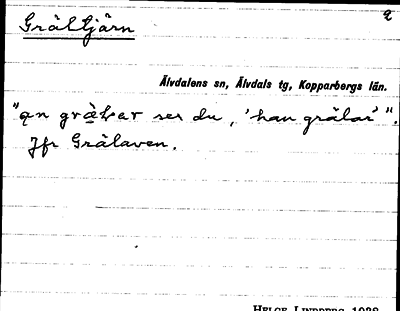 Grältjärn 2
Älvdalens sn, Älvdals tg, Kopparbergs län.
"an ser du, 'han grälar'".
Jfr Grälaven.
HELGE LINDBERG 1938